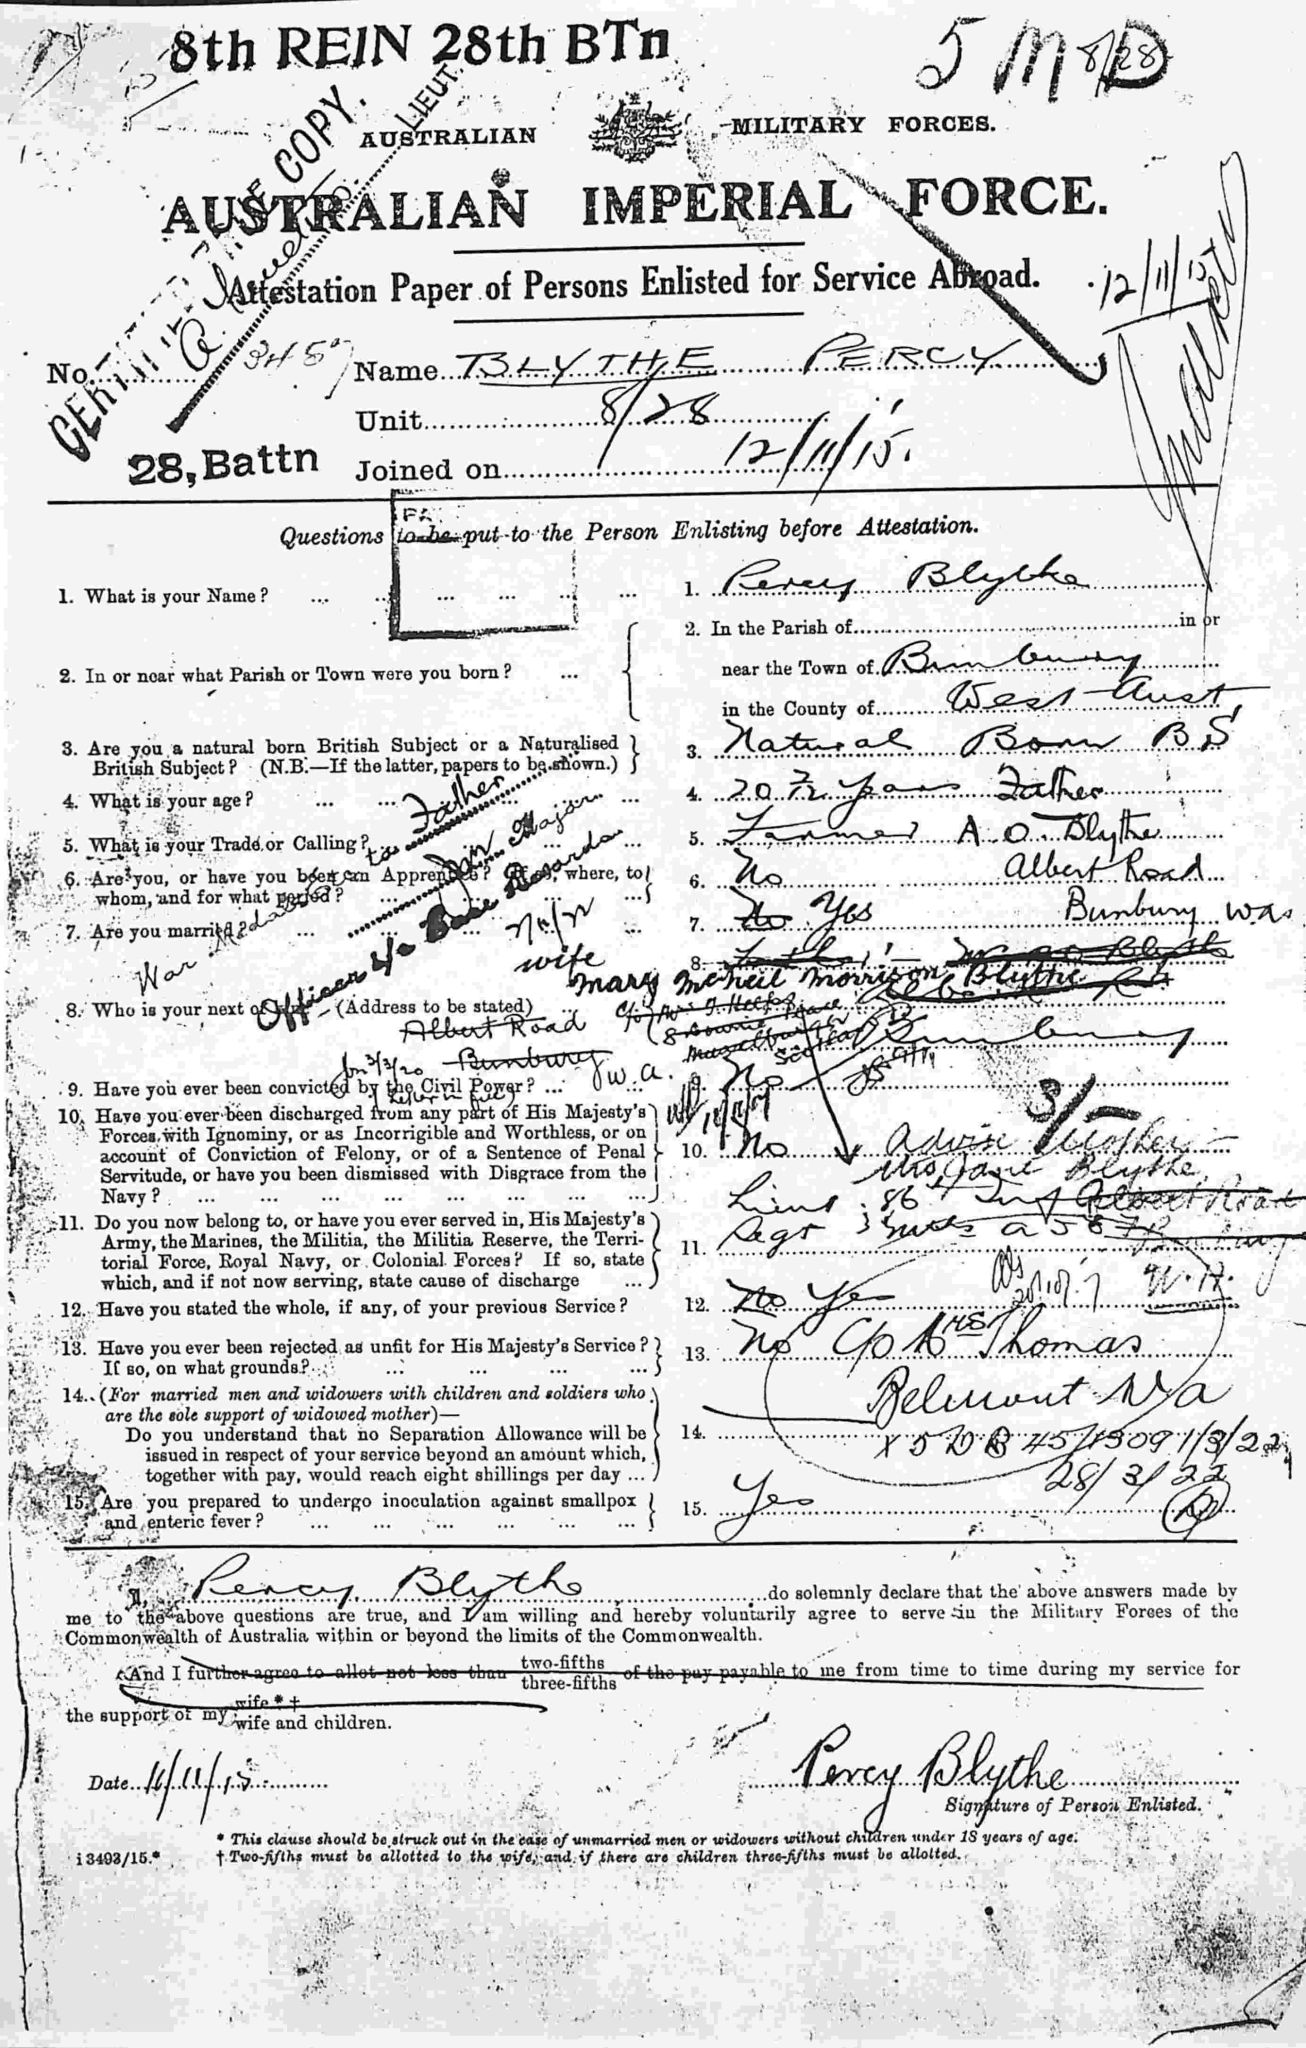 8th REIN 28th BTn
5 MD
8/28
CERTIFIED TRUE COPY.
LIEUT.
AUSTRALIAN MILITARY FORCES.
AUSTRALIAN IMPERIAL FORCE.
Attestation Paper of Persons Enlisted for Service Abroad.
12/11/15
No. 3457 Name BLYTHE PERCY
Unit 8/28
28, Battn
Joined on 12/11/15.
Questions to be put to the Person Enlisting before Attestation.
1. What is your Name? ... ... ... ... ... ...
1. Percy Blythe
2. In or near what Parish or Town were you born? ...
2. In the Parish of in or
near the Town of Bunbury
in the County of West Aust
3. Are you a natural born British Subject or a Naturalised
British Subject? (N.B.—If the latter, papers to be shown.)
3. Natural Born BS
4. What is your age? ... ... ... ...
4. 20 7/12 years Father
5. What is your Trade or Calling? ... ...
5. Farmer A O. Blythe
6. Are you, or have you been an Apprentice? If so, where, to
whom, and for what period? ... ... ... ...
6. No Albert Road
7. Are you married? ... ... ... ...
7. No Yes Bunbury WA
War Medal to Father
Officer i/c Base Records
Major
wife
Mary McNeil Morrison Blythe
8. Who is your next of (Address to be stated) ...
8. Father
Bunbury
Albert Road
Bunbury W.A.
Scotland
3/3/20
9. Have you ever been convicted by the Civil Power? ...
9. No
10. Have you ever been discharged from any part of His Majesty's
Forces, with Ignominy, or as Incorrigible and Worthless, or on
account of Conviction of Felony, or of a Sentence of Penal
Servitude, or have you been dismissed with Disgrace from the
Navy? ... ... ... ... ... ... ...
3/-
10. No Advise Mother
Mrs Jane Blythe
Albert Road
11. Do you now belong to, or have you ever served in, His Majesty's
Army, the Marines, the Militia, the Militia Reserve, the Terri-
torial Force, Royal Navy, or Colonial Forces? If so, state
which, and if not now serving, state cause of discharge ...
11. 86 Inf
W.A.
12. Have you stated the whole, if any, of your previous Service?
12. No Yes
13. Have you ever been rejected as unfit for His Majesty's Service?
If so, on what grounds? ... ... ... ...
13. No C/o Mrs Thomas
Belmont WA
14. (For married men and widowers with children and soldiers who
are the sole support of widowed mother)—
Do you understand that no Separation Allowance will be
issued in respect of your service beyond an amount which,
together with pay, would reach eight shillings per day ...
14. 1/3/22
28/3/22
15. Are you prepared to undergo inoculation against smallpox
and enteric fever? ... ... ... ... ... ...
15. Yes
I, Percy Blythe do solemnly declare that the above answers made by
me to the above questions are true, and I am willing and hereby voluntarily agree to serve in the Military Forces of the
Commonwealth of Australia within or beyond the limits of the Commonwealth.
*And I further agree to allot not less than two-fifths three-fifths of the pay payable to me from time to time during my service for
the support of my wife *† wife and children.
Date 11/11/15
Percy Blythe
Signature of Person Enlisted.
* This clause should be struck out in the case of unmarried men or widowers without children under 18 years of age.
† Two-fifths must be allotted to the wife, and if there are children three-fifths must be allotted.
i 3493/15.*